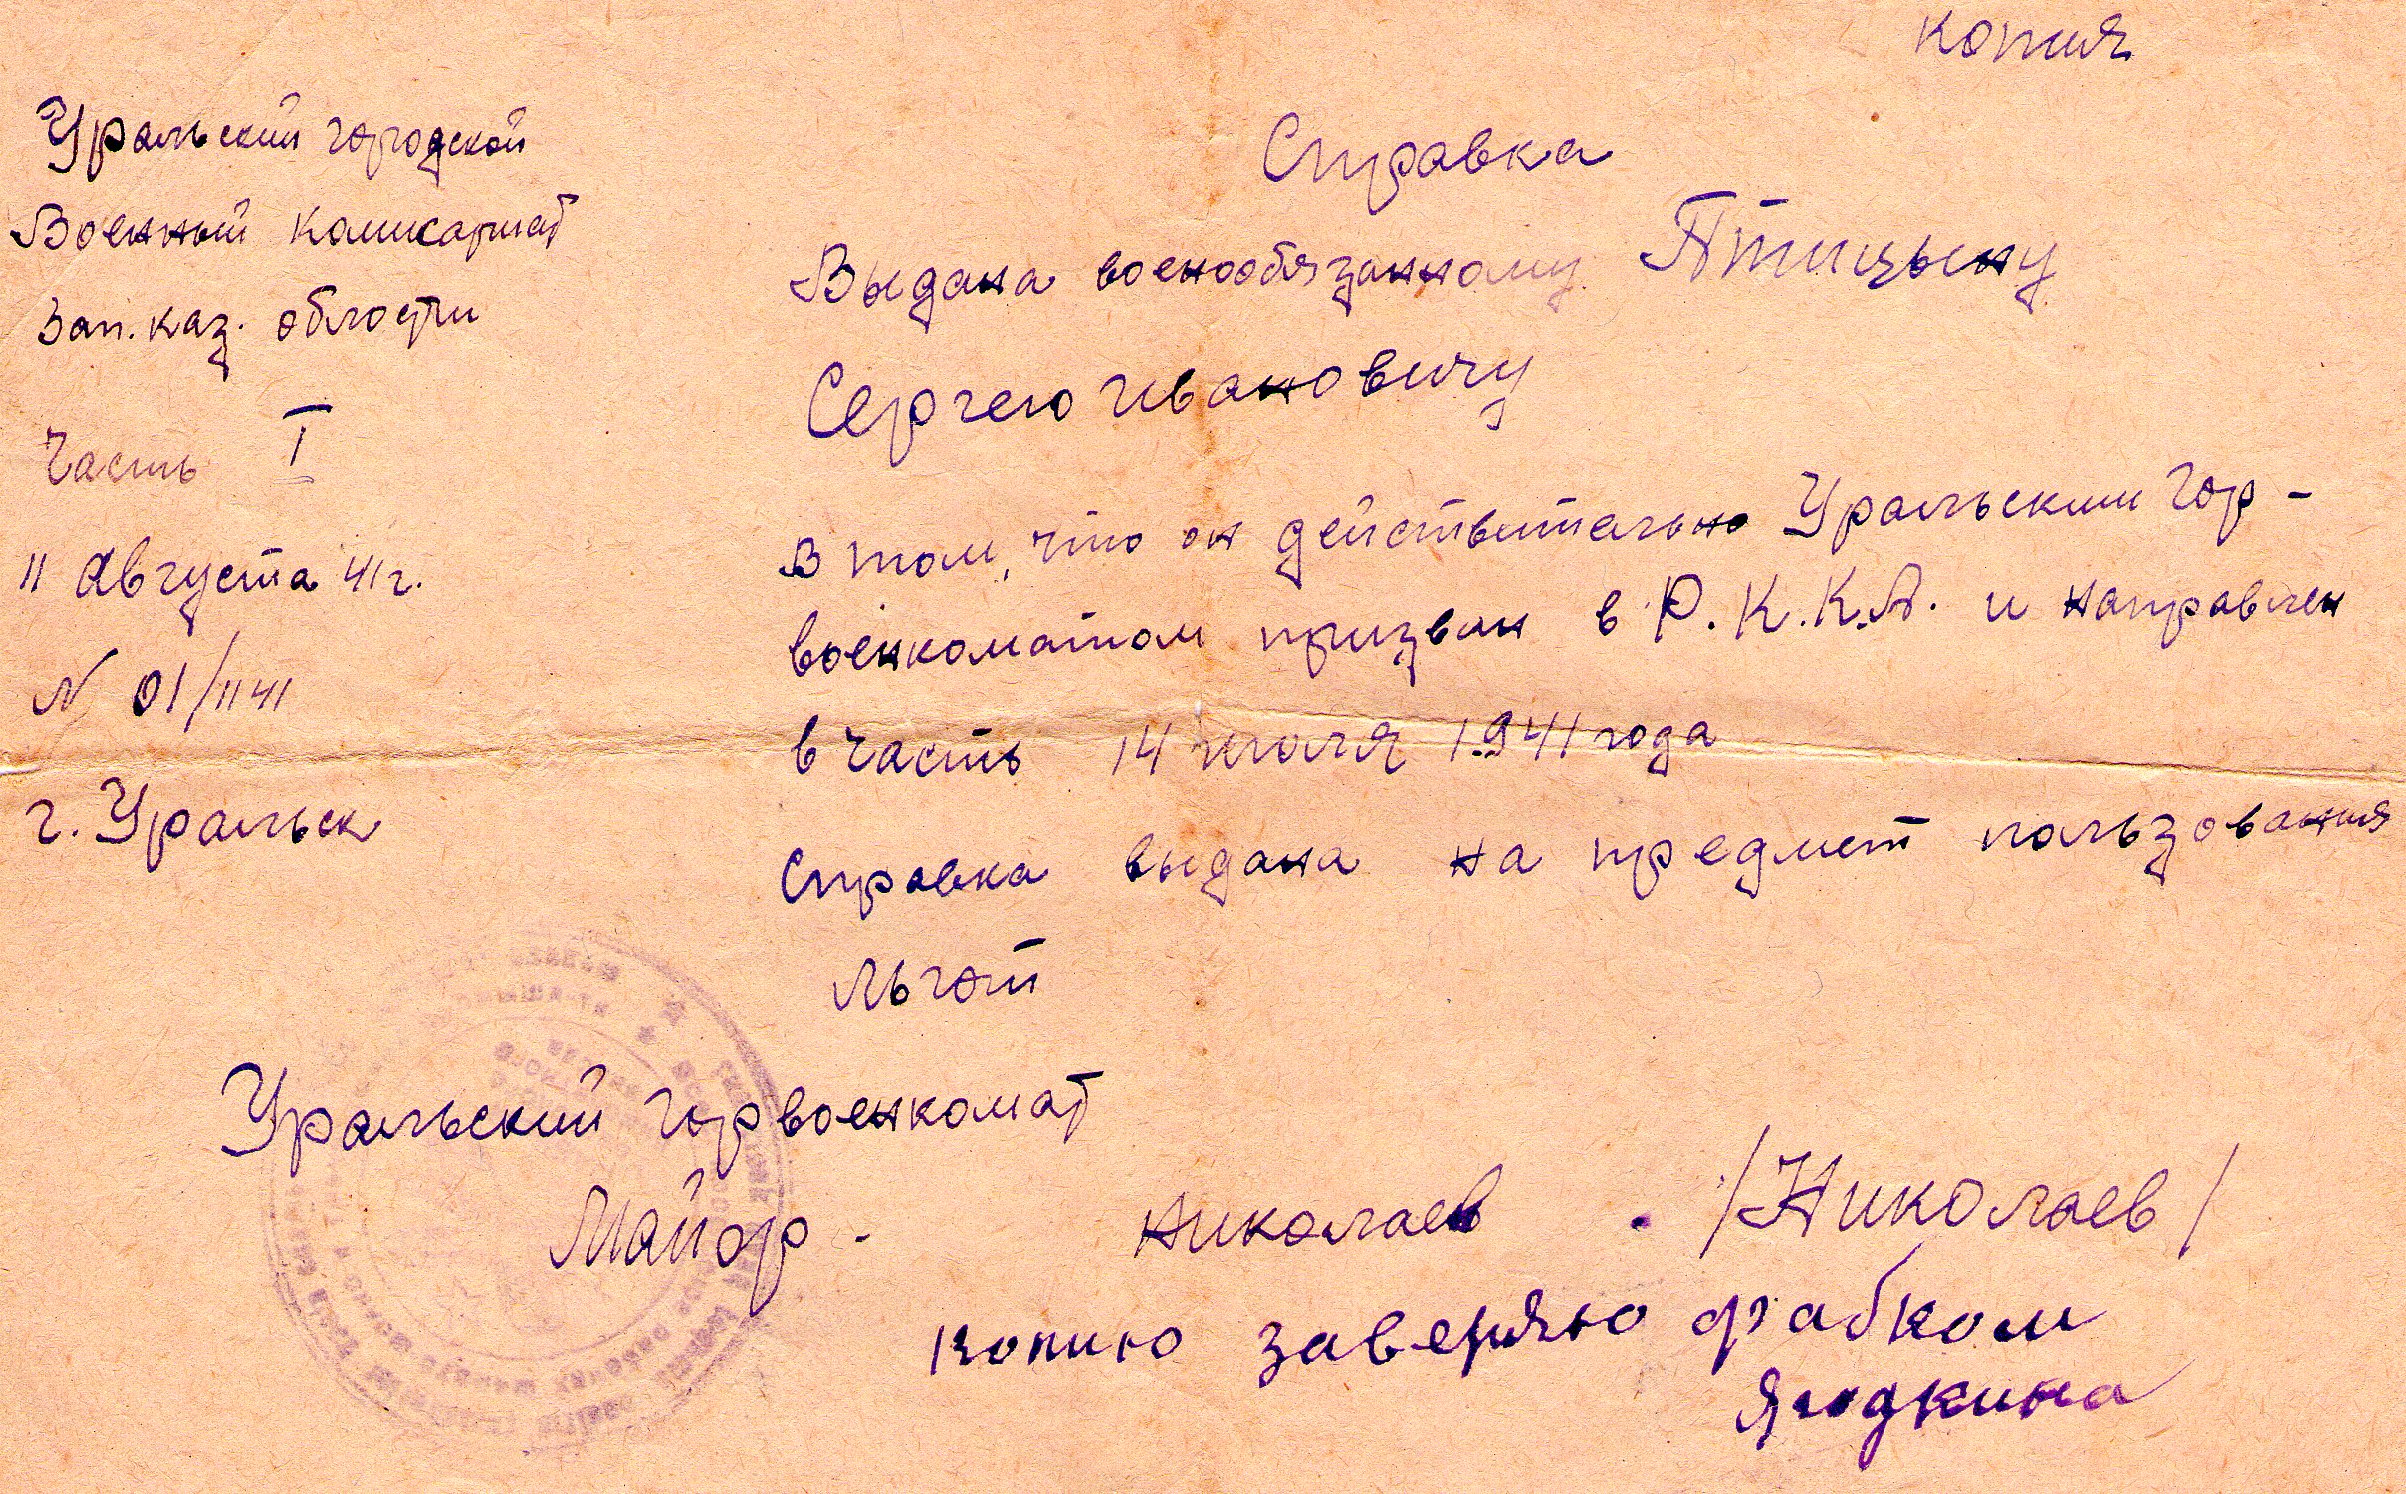 копия
Уральский городской
Военный комисариат
Зап. каз. области
Часть I
11 Августа 41 г.
N 01/1141
г. Уральск
Справка
Выдана военообязанному Птицыну
Сергею Ивановичу
в том, что он действительно Уральским Гор-
военкоматом призван в Р.К.К.А. и направлен
в часть 14 июля 1941 года
Справка выдана на предмет пользования
льгот
Уральский Горвоенкомат
Майор - Николаев . /Николаев/
копию заверяю фабком
Ягодкина